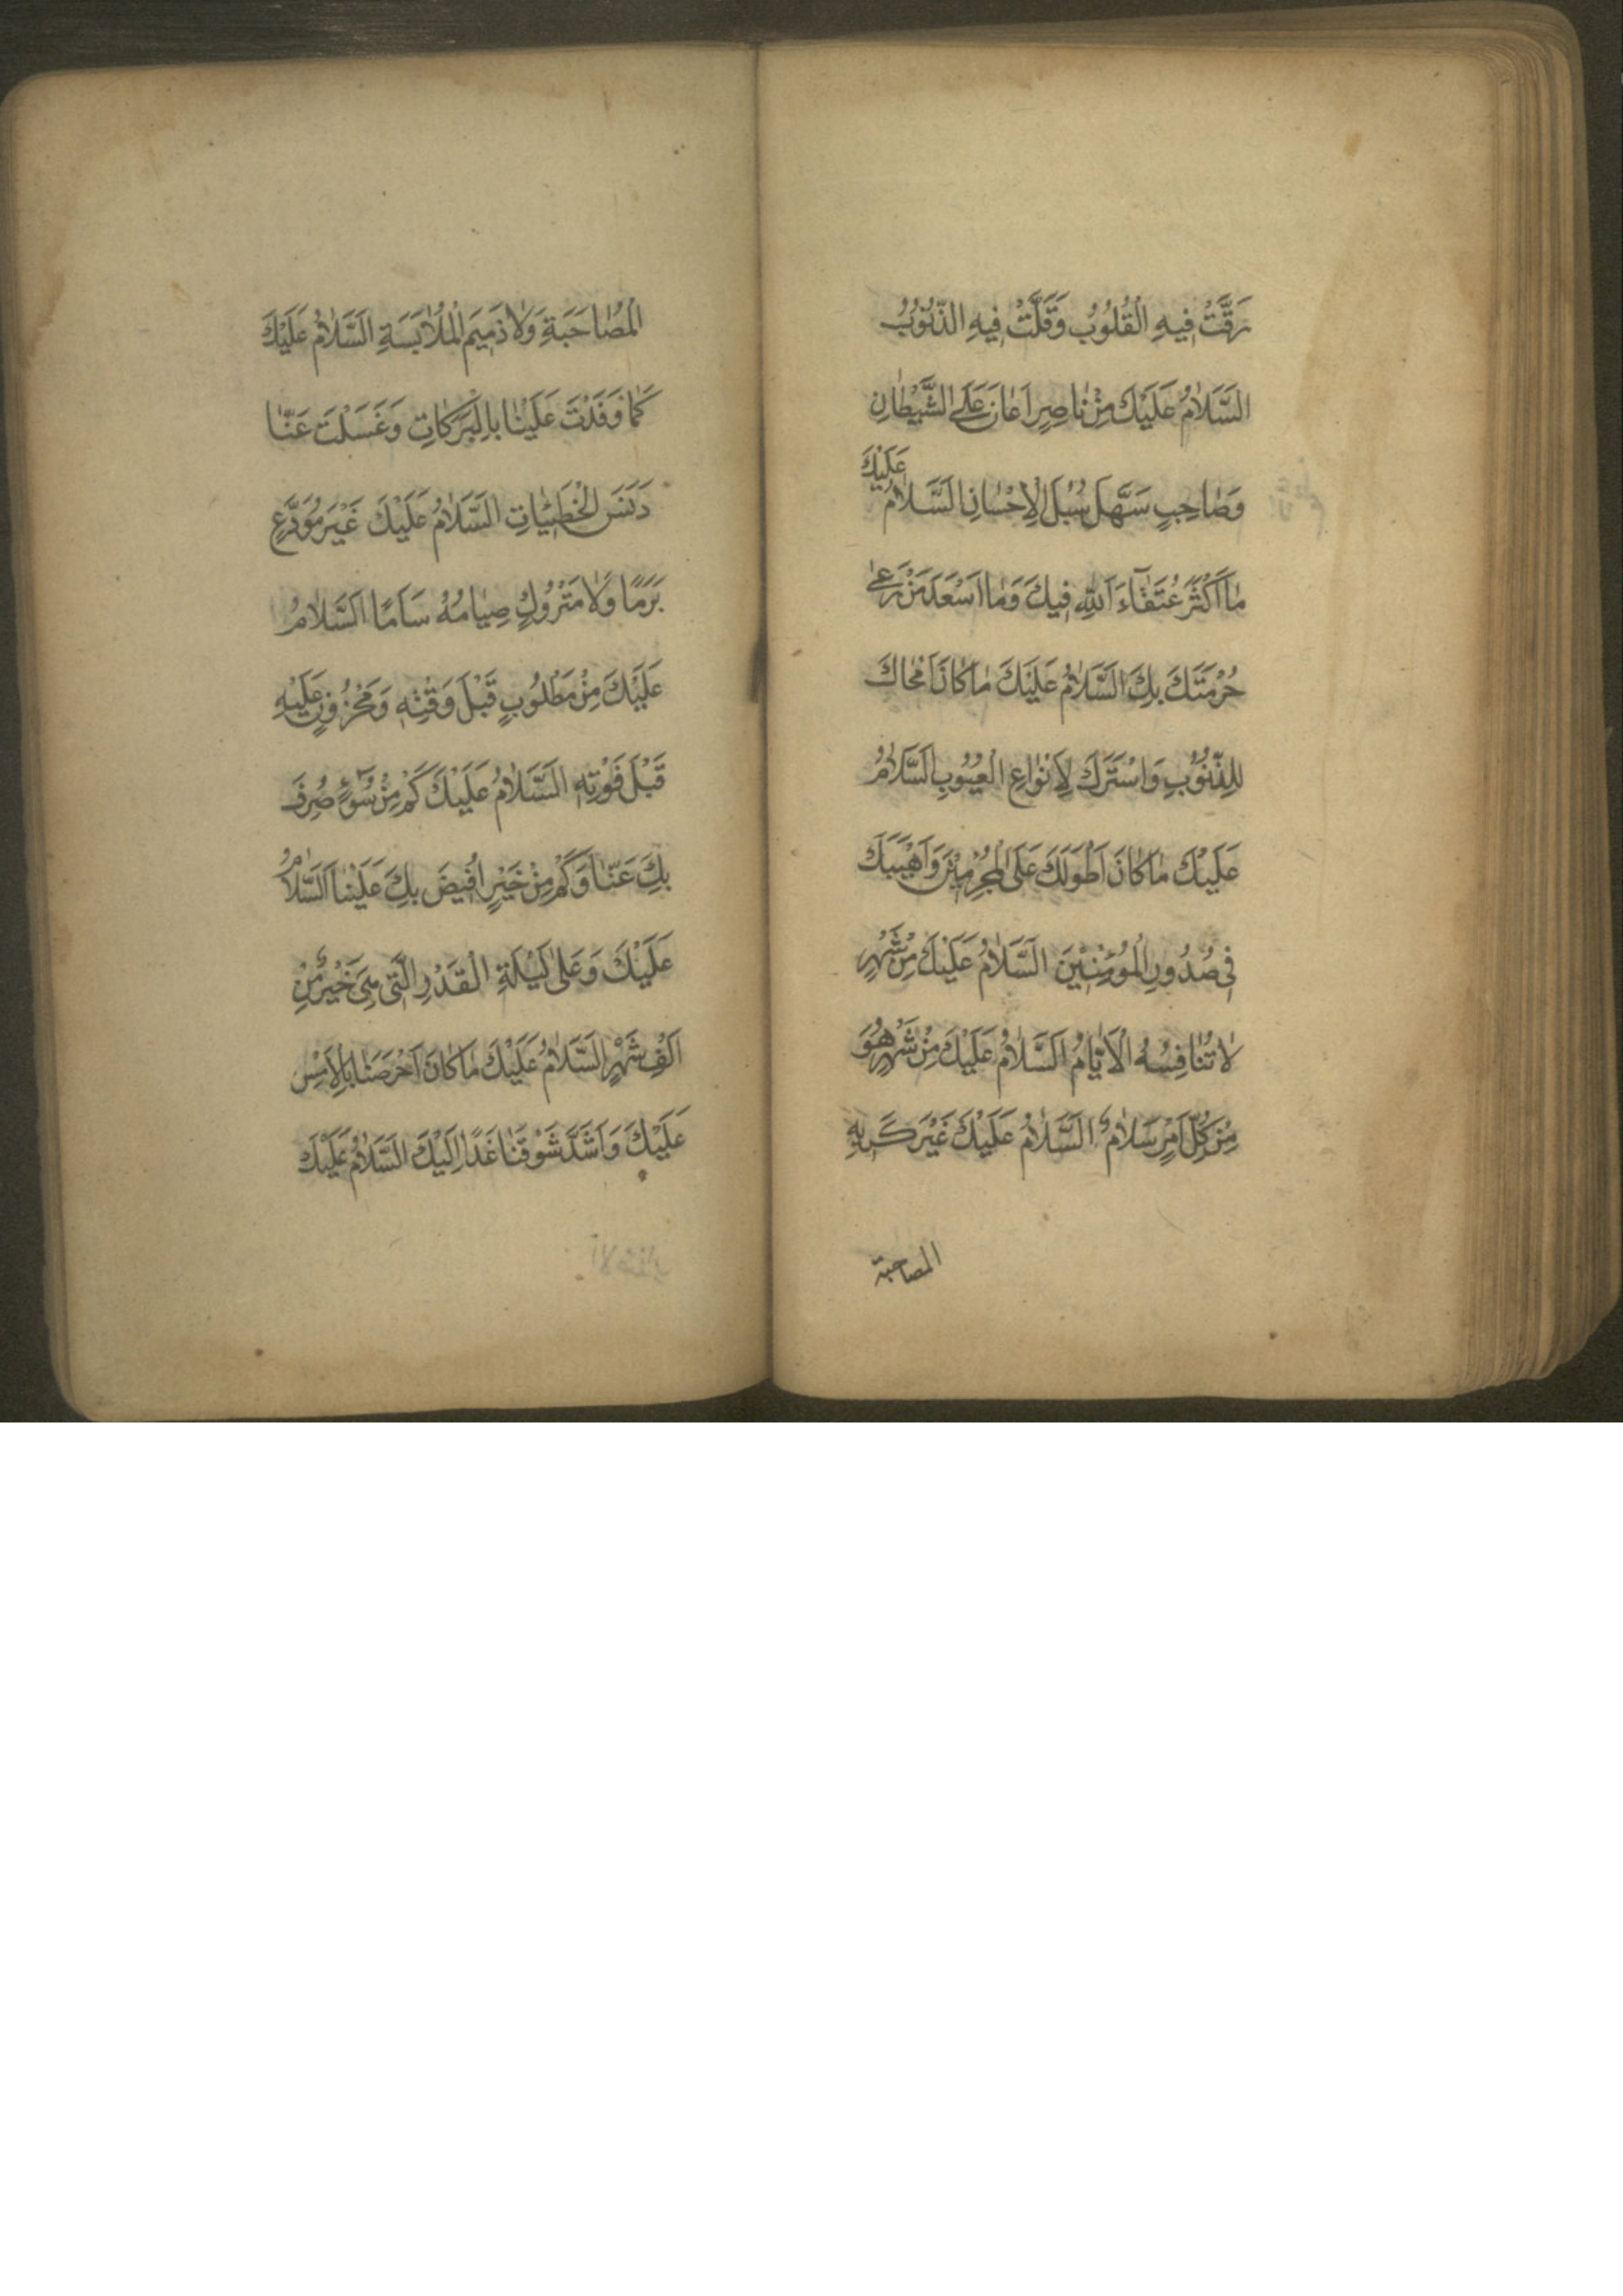 رَقَّتْ فِيهِ الْقُلُوبُ وَقَلَّتْ فِيهِ الذُّنُوبُ
السَّلَامُ عَلَيْكَ مِنْ نَاصِرٍ اَعَانَ عَلَى الشَّيْطَانِ
وَصَاحِبٍ سَهَّلَ سُبُلَ الْاِحْسَانِ السَّلَامُ عَلَيْكَ
مَا اَكْثَرَ عُتَقَآءَ اللهِ فِيكَ وَمَا اَسْعَدَ مَنْ رَعٰى
حُرْمَتَكَ بِكَ السَّلَامُ عَلَيْكَ مَا كَانَ اَمْحَاكَ
لِلذُّنُوبِ وَاَسْتَرَكَ لِاَنْوَاعِ الْعُيُوبِ السَّلَامُ
عَلَيْكَ مَا كَانَ اَطْوَلَكَ عَلَى الْمُجْرِمِيْنَ وَاَهْيَبَكَ
فِي صُدُورِ الْمُؤْمِنِيْنَ السَّلَامُ عَلَيْكَ مِنْ شَهْرٍ
لَا تُنَافِسُهُ الْاَيَّامُ السَّلَامُ عَلَيْكَ مِنْ شَهْرٍ هُوَ
مِنْ كُلِّ اَمْرٍ سَلَامٌ السَّلَامُ عَلَيْكَ غَيْرَ كَرِيهِ
المصاحبة
الْمُصَاحَبَةِ وَلَا ذَمِيمِ الْمُلَابَسَةِ السَّلَامُ عَلَيْكَ
كَمَا وَفَدْتَ عَلَيْنَا بِالْبَرَكَاتِ وَغَسَلْتَ عَنَّا
دَنَسَ الْخَطِيْئَاتِ السَّلَامُ عَلَيْكَ غَيْرَ مُوَدَّعٍ
بَرَمًا وَلَا مَتْرُوكٍ صِيَامُهُ سَاَمًا السَّلَامُ
عَلَيْكَ مِنْ مَطْلُوبٍ قَبْلَ وَقْتِهِ وَمَحْزُونٍ عَلَيْهِ
قَبْلَ فَوْتِهِ السَّلَامُ عَلَيْكَ كَمْ مِنْ سُوءٍ صُرِفَ
بِكَ عَنَّا وَكَمْ مِنْ خَيْرٍ اُفِيضَ بِكَ عَلَيْنَا السَّلَامُ
عَلَيْكَ وَعَلٰى لَيْلَةِ الْقَدْرِ الَّتِي هِيَ خَيْرٌ مِنْ
اَلْفِ شَهْرٍ السَّلَامُ عَلَيْكَ مَا كَانَ اَحْرَصَنَا بِالْاَمْسِ
عَلَيْكَ وَاَشَدَّ شَوْقَنَا غَدًا اِلَيْكَ السَّلَامُ عَلَيْكَ